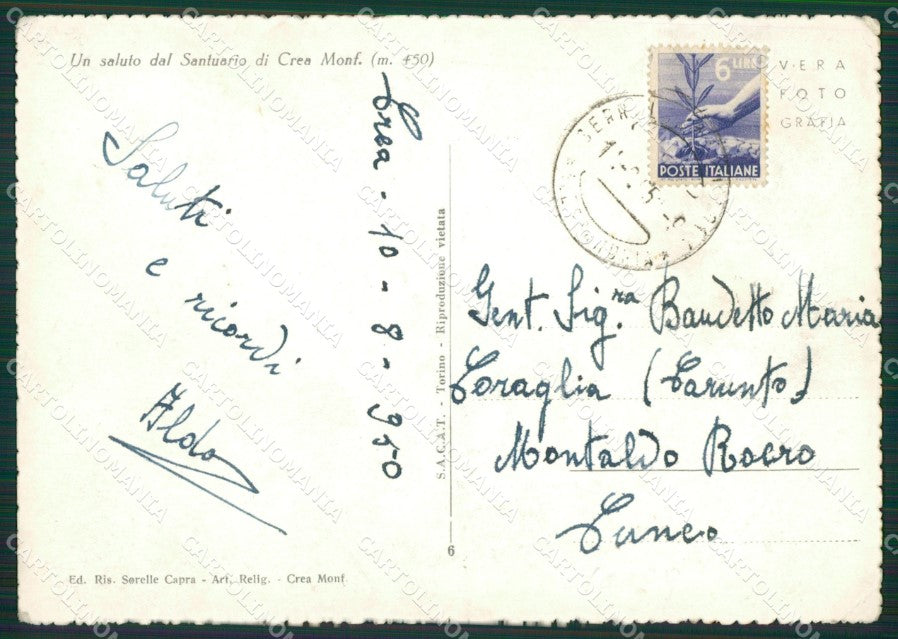 Un saluto dal Santuario di Crea Monf. (m. 450)
Crea - 10 - 8 - 950
Saluti
e ricordi
Aldo
S.A.C.A.T. - Torino - Riproduzione vietata
6
Ed. Ris. Sorelle Capra - Art. Relig. - Crea Monf.
6 LIRE
POSTE ITALIANE
VERA
FOTO
GRAFIA
Gent. Sig.ra Baudetto Maria
Coraglia (Carunto)
Montaldo Roero
Cuneo
CARTOLINOMANIA